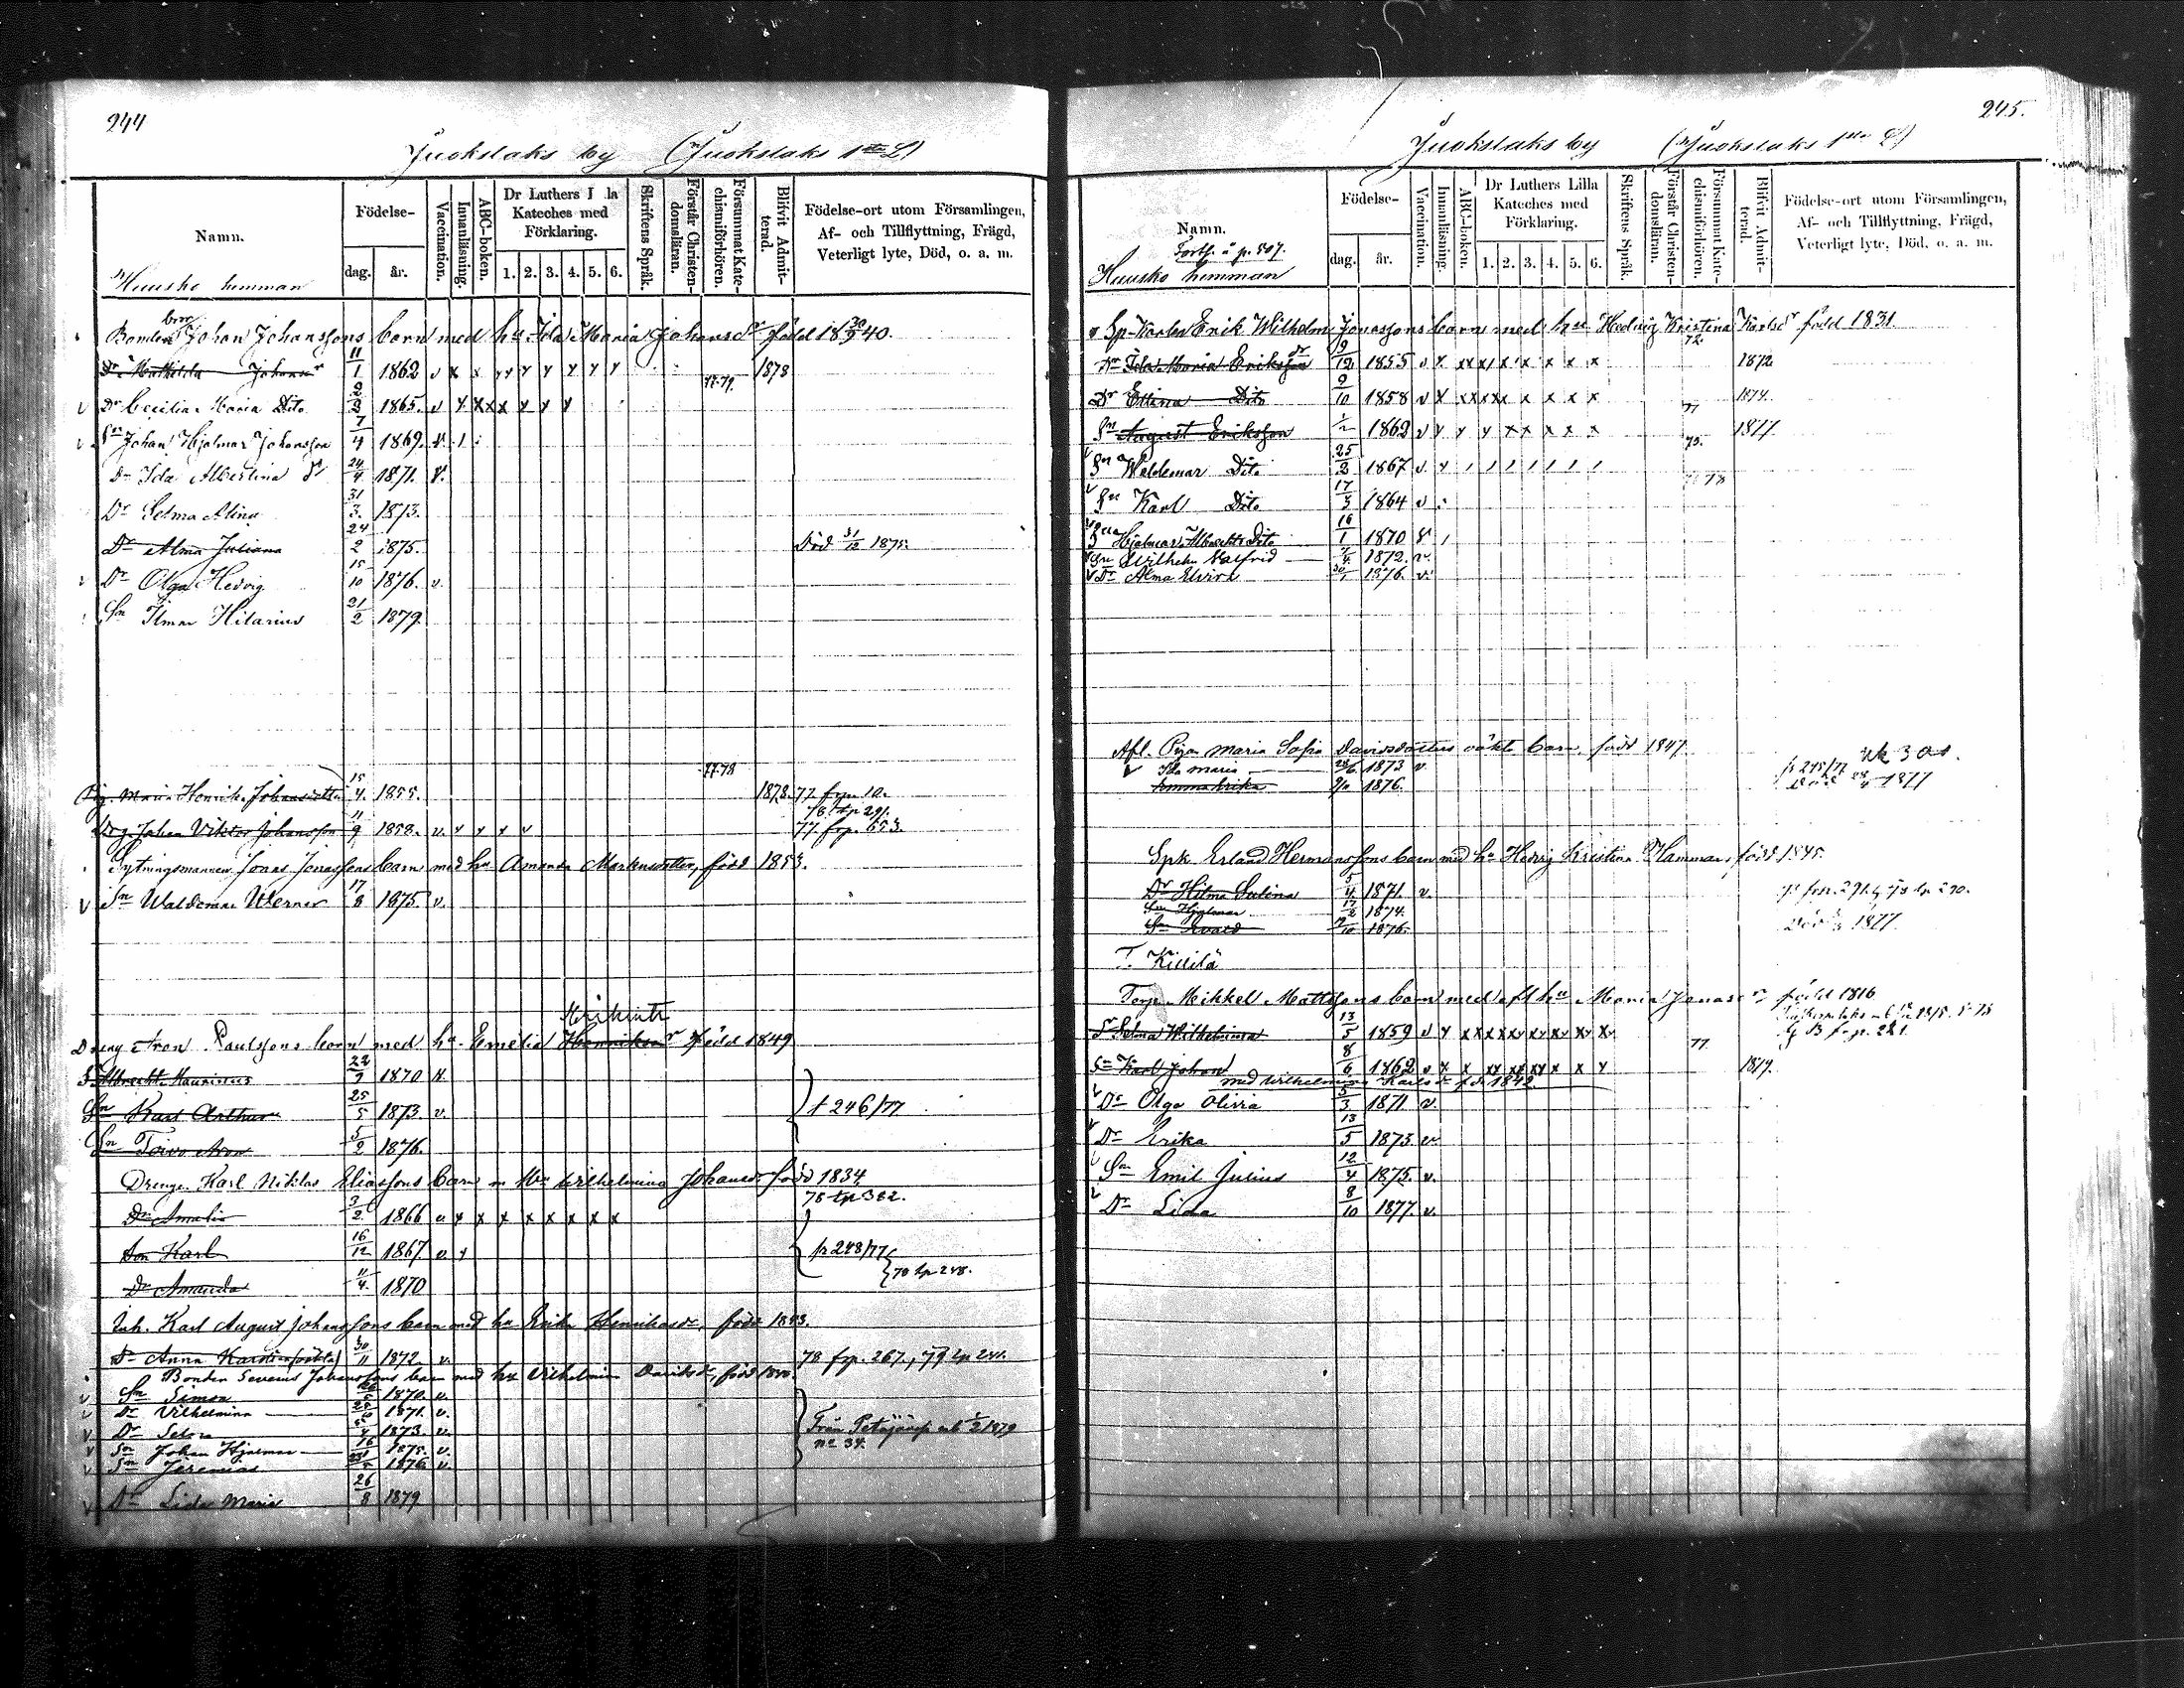 244
Juokslaks by (Juokslaks 1sta L)
Namn.
Födelse-
dag. år.
Vaccination.
Innanläsning.
ABC-boken.
Dr Luthers l la
Kateches med
Förklaring.
1. 2. 3. 4. 5. 6.
Skriftens Språk.
Förstår Christen-
domsläran.
Försummat Kate-
chismiförhören.
Blifvit Admit-
terad.
Födelse-ort utom Församlingen,
Af- och Tillflyttning, Frägd,
Veterligt lyte, Död, o. a. m.
Huusko hemman
Bonden Johan Johanssons barn med hu Ida Maria Johansdr född 18 30/9 40.
Dr Mathilda Johansdr 11/1 1862 v x x x x x x x x x 1878
77.79.
v Dr Cecilia Maria Dito 2/2 1865. v x x x x x x x
v Sn Johan Hjalmar Johansson 7/4 1869. v. 1
Dr Ida Albertina do 24/4 1871. v.
Dr Selma Alina 31/3. 1873.
Dr Alma Juliana 24/2 1875. Död 31/12 1875.
v Dr Olga Hedvig 15/10 1876. v.
Sn Ilmar Hilarius 21/2 1879.
77.78
Pig. Maria Henrika Johansdotter 15/4. 1855. 1878. 77. frp. 10.
78. tp 291.
Drg. Johan Viktor Johansson 11/9 1858. v. x x x v 77. frp. 653.
Sytningsmannen Jonas Jonassons barn med hu Amanda Markusdotter, född 1853.
v Sn Waldemar Werner 17/8 1875. v.
Dreng Aron Paulssons barn med hu Emelia Henriksdr född 1849
S Albrecht Mauritius 22/9 1870 v.
Sn Karl Arthur 25/5 1873. v. } t 246/77
Sn Toivo Aron 5/2 1876.
Drenge. Karl Niklas Eliassons barn m hu Wilhelmina Johansdr född 1834
78 tp 382.
Dr Amalia 3/2. 1866 v x x x x x x x x
Son Karl 16/12 1867 v x } fr 248/77
Dr Amanda 11/4. 1870 { 78 tp 248.
Inh. Karl August Johanssons barn med hu Erika Henriksdr, född 1843.
Dr Anna Karolina (oäkta) 30/11 1872. v. 78 frp. 267., 79 tp 241.
Bonden Severus Johanssons barn med hu Vilhelmina Davidsdr, född 1840.
v Sn Simon 1870. v.
v Dr Vilhelmina 1871. v.
v Dr Selma 1873. v. } Från Petäjäup
v Sn Johan Hjalmar 1875. v. no 34.
v Sn Jeremias 1876 v.
v Dr Lida Maria 26/8 1879
245.
Juokslaks by (Juokslaks 1sta L)
Namn.
Fortf. å p. 507.
Huusko hemman
Födelse-
dag. år.
Vaccination.
Innanläsning.
ABC-boken.
Dr Luthers Lilla
Kateches med
Förklaring.
1. 2. 3. 4. 5. 6.
Skriftens Språk.
Förstår Christen-
domsläran.
Försummat Kate-
chismiförhören.
Blifvit Admit-
terad.
Födelse-ort utom Församlingen,
Af- och Tillflyttning, Frägd,
Veterligt lyte, Död, o. a. m.
Sp-Karlen Erik Wilhelm Jonassons barn med hu Hedvig Kristina Karlsdr född 1831.
72.
Dr Ida Maria Eriksdr 9/12 1855 v x x x x x x x x x 1872
Dr Ettina Dito 9/10 1858 v x x x x x x x x x 1874.
77
Sn August Eriksson 1/2 1862 v v x x x x x x x 1877.
75.
v Sn Waldemar Dito 25/2 1867 v. v / / / / / / /
78
v Sn Karl Dito 17/3 1864 v
v Sn Hjalmar Albrecht Dito 16/1 1870 v /
v Sn Wilhelm Walfrid 1872. v.
v Dr Alma Elvira 30/1 1876. v.
Afl. Pigan Maria Sofia Davidsdotters oäkta barn, född 1847.
v Ida Maria 1873 v.
Emma Erika 9/11 1876. 1877
fr 245/77
Spk. Erland Hermanssons barn med hu Hedvig Kristina Hammar, född 1845.
Dr Hilma Sulina 5/4 1871. v.
Sn Hjalmar 17/2 1874.
Sn Evald 1876. 1877.
T. Killilä
Torp. Mikkel Mattssons barn med afl hu Maria Jonasdr född 1816
Dr Selma Wilhelmina 13/5 1859 v x x x x x x x x x
77
Sn Karl Johan 8/6 1862 v x x x x x x x x x 1879.
med Wilhelmina Karlsdr f. 1842
v Dr Olga Olivia 5/3 1871 v.
v Dr Erika 13/5 1873 v.
v Sn Emil Julius 12/4 1875. v.
v Dr Lida 8/10 1877 v.